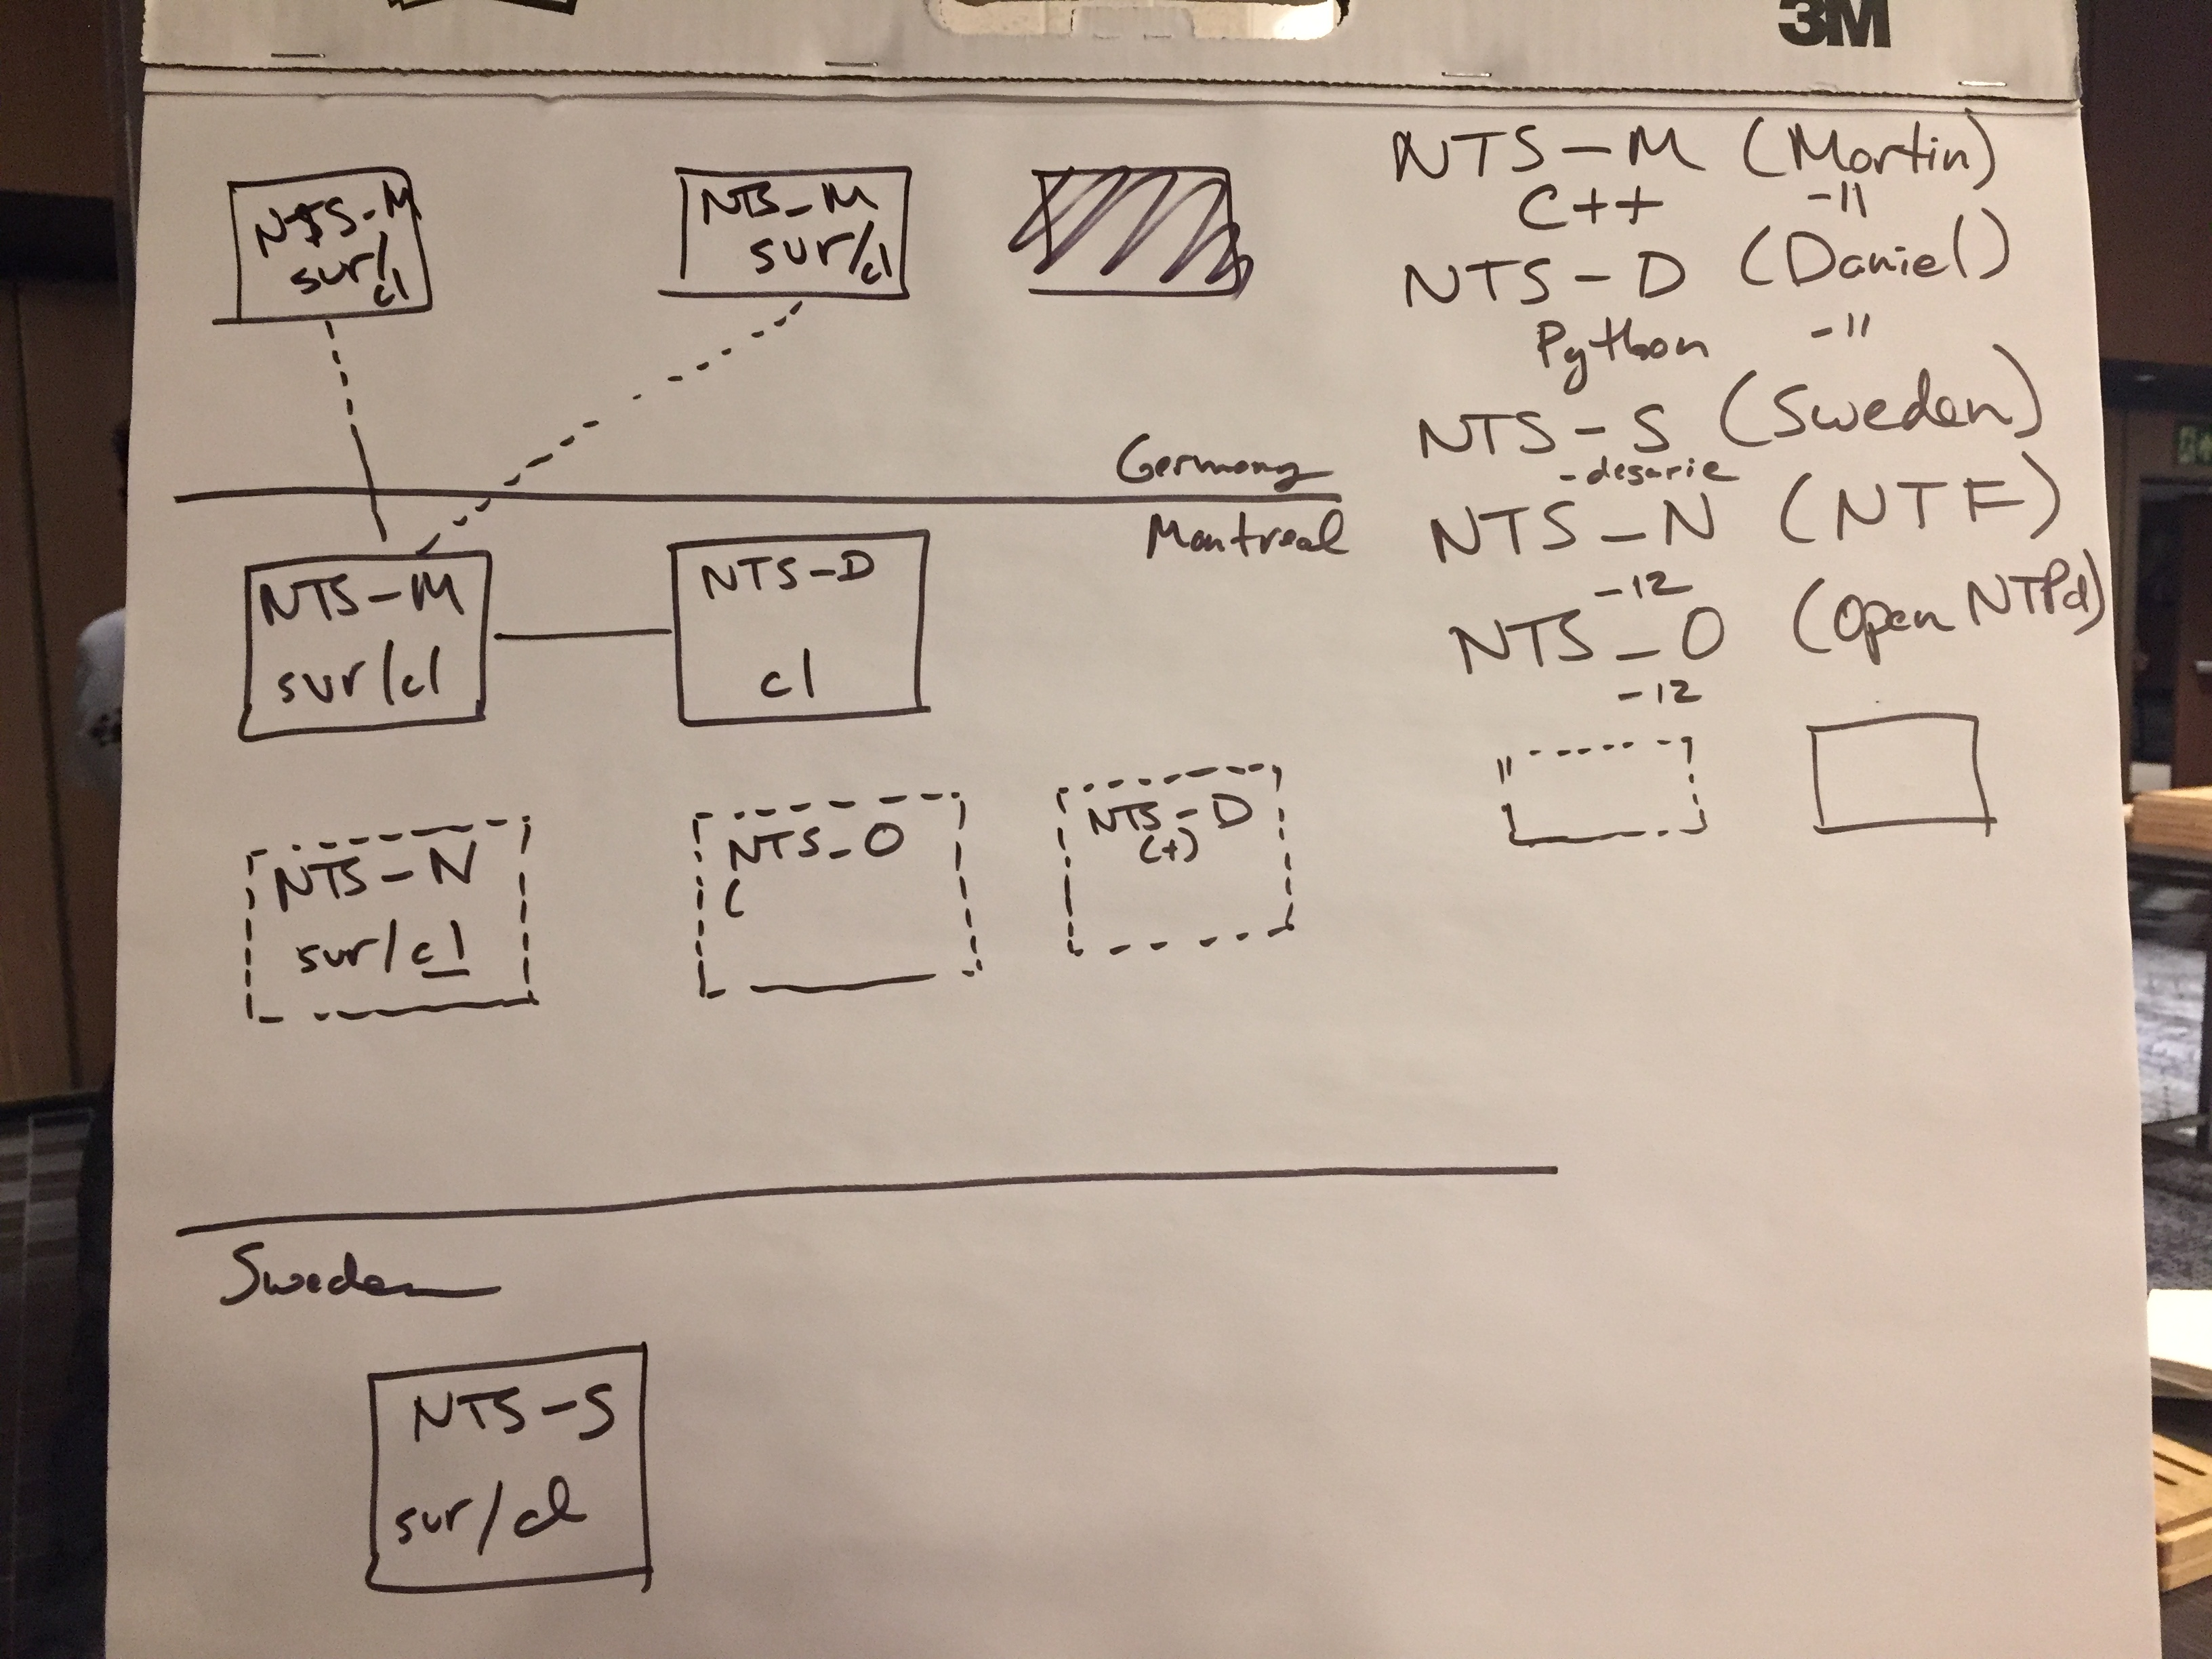 3M
NTS-M
sur/cl
NTS-M
sur/cl
NTS-M (Martin)
C++ -11
NTS-D (Daniel)
Python -11
NTS-S (Sweden)
NTS-N (NTF)
-12
NTS-O (Open NTPd)
-12
Germany
Montreal
NTS-M
sur/cl
NTS-D
cl
NTS-N
sur/cl
NTS-O
(
NTS-D
(+)
Sweden
NTS-S
sur/cl